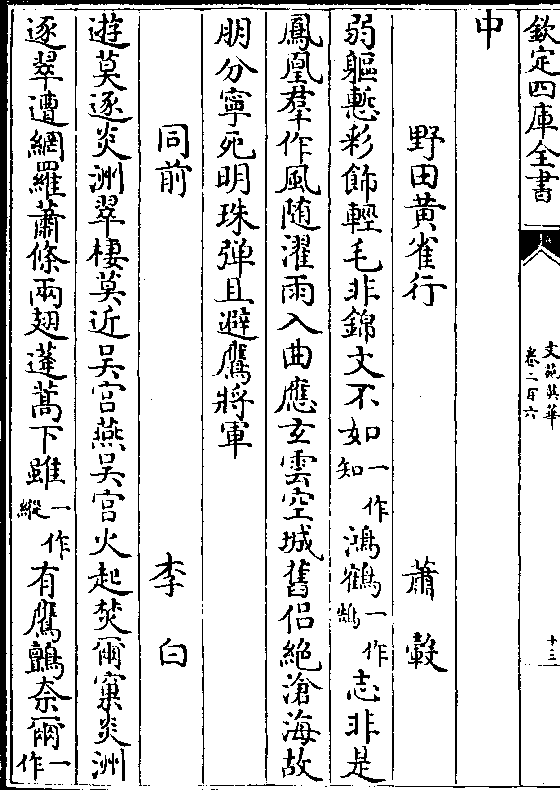 欽定四庫全書
文苑英華
卷二百六
十三
中
野田黄雀行 蕭轂
弱軀慙彩飾輕毛非錦文不如一作知鴻鶴一作鵠志非是
鳳凰羣作風随濯雨入曲應玄雲空城舊侣絶滄海故
朋分寧死明珠弹且避鷹將軍
同前 李白
遊莫逐炎洲翠棲莫近吴宫燕吴宫火起焚爾窠炎洲
逐翠遭網羅蕭條兩翅蓬蒿下雖一作縱有鷹鸇奈爾一作